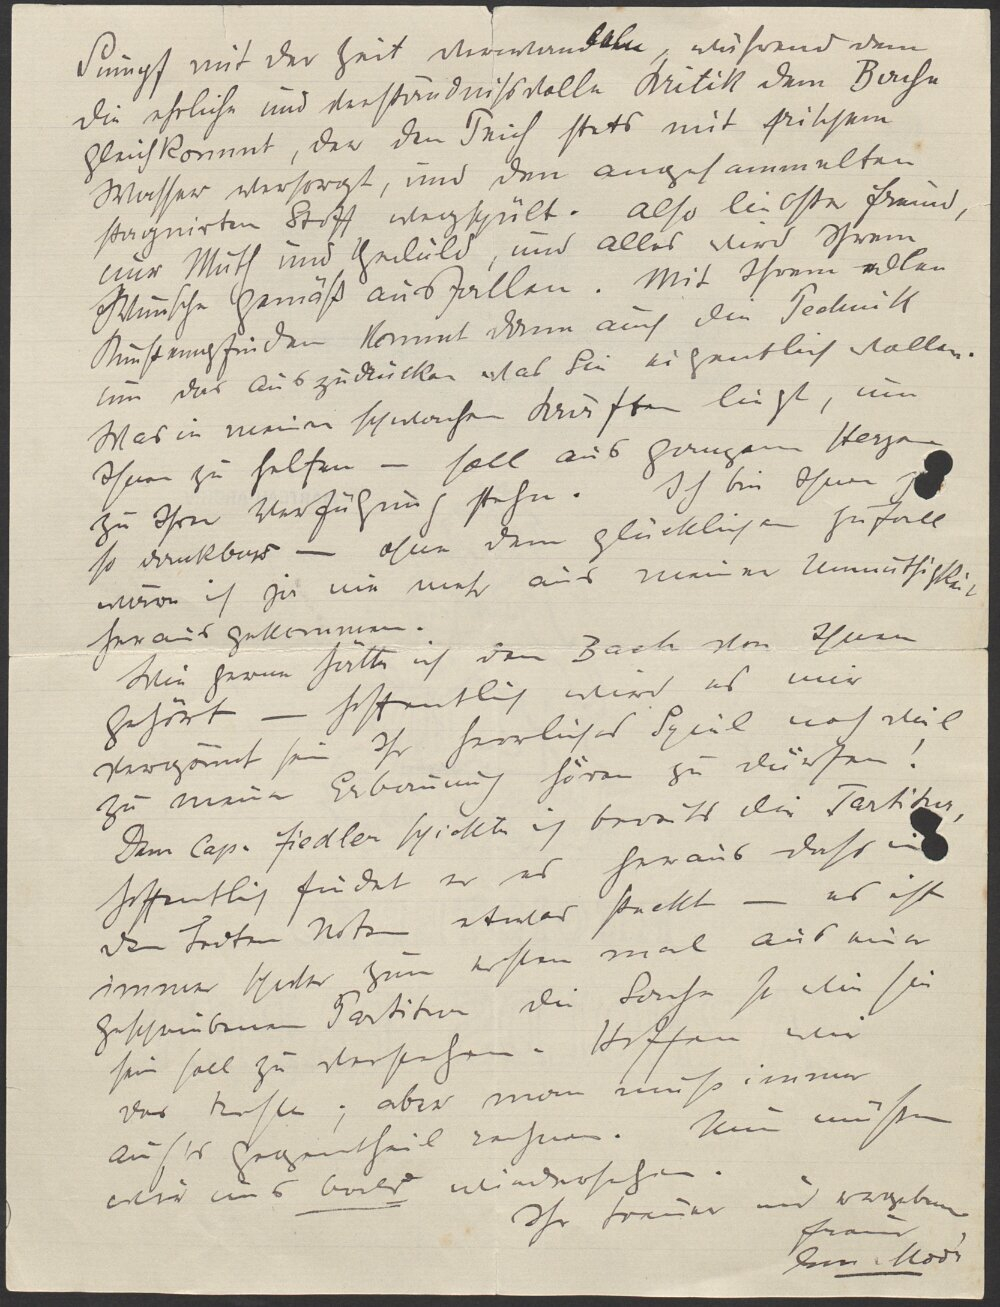 Sumpf mit der Zeit verwandeln, während dem
die ehrliche und verständnisvolle Kritik dem Bache
gleichkommt, der den Teich stets mit frischem
Wasser versorgt, und den angesammelten
stagnirten Stoff wegspült. Also liebster Freund,
nur Muth und Geduld, und alles wird Ihrem
Wunsche gemäß ausfallen. Mit Ihrem edlen
Kunstempfinden kommt dann auch die Technik
um das auszudrücken was Sie eigentlich wollen.
Was in meinen schwachen Kräften liegt, um
Ihnen zu helfen – soll aus ganzem Herzen
zu Ihrer Verfügung stehn. Ich bin Ihnen ja
so dankbar – ohne dem glücklichen Zufall
wäre ich ja nie mehr aus meiner Unmuthigkeit
herausgekommen.
Wie gerne hätte ich den Bach von Ihnen
gehört – hoffentlich wird es mir
vergönnt sein Ihr herrliches Spiel noch viel
zu meiner Erbauung hören zu dürfen!
Dem Cap. Fiedler schickte ich bereits die Partitur,
hoffentlich findet er es heraus dass in
den todten Noten etwas steckt – es ist
immer schwer zum ersten mal aus einer
geschriebenen Partitur die Sache so wie sie
sein soll zu verstehen. Hoffen wir
das Beste; aber man muß immer
auf's Gegentheil rechnen. Nun müssen
wir uns bald wiedersehen.
Ihr treuer und ergebener
Freund
Em. Moór